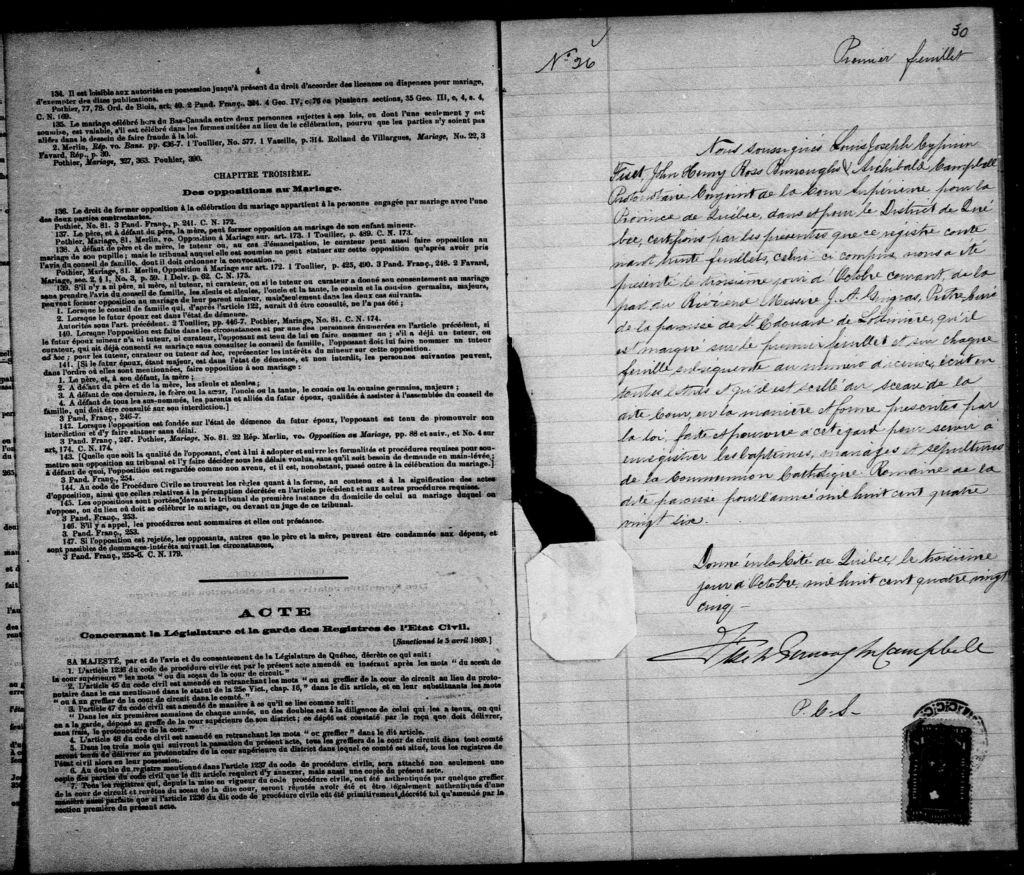 4
134. Il est loisible aux autorités en possession jusqu'à présent du droit d'accorder des licences ou dispenses pour mariage,
d'exempter des dites publications.
Pothier, 77, 78. Ord. de Blois, art. 40. 2 Pand. Franç., 324. 4 Geo. IV, c. 76 en plusieurs sections, 35 Geo. III, c. 4, s. 4,
C. N. 169.
135. Le mariage célébré hors du Bas-Canada entre deux personnes sujettes à ses lois, ou dont l'une seulement y est
soumise, est valable, s'il est célébré dans les formes usitées au lieu de la célébration, pourvu que les parties n'y soient pas
allées dans le dessein de faire fraude à la loi.
2. Merlin, Rép. vo. Bans. pp. 436-7. 1 Toullier, No. 577. 1 Vazeille, p. 314. Rolland de Villargues, Mariage, No. 22, 3
Favard, Rép., p. 30.
Pothier, Mariage, 327, 363. Pouhier, 390.
CHAPITRE TROISIÈME.
Des oppositions au Mariage.
136. Le droit de former opposition à la célébration du mariage appartient à la personne engagée par mariage avec l'une
des deux parties contractantes.
Pothier, No. 81. 3 Pand. Franç., p. 241. C. N. 172.
137. Le père, et à défaut du père, la mère, peut former opposition au mariage de son enfant mineur.
Pothier, Mariage, 81, Merlin, vo. Opposition à Mariage sur art. 173. 1 Toullier, p. 489. C. N. 173.
138. A défaut de père et de mère, le tuteur ou, au cas d'émancipation, le curateur peut aussi faire opposition au
mariage de son pupille; mais le tribunal auquel elle est soumise ne peut statuer sur cette opposition qu'après avoir pris
l'avis du conseil de famille, dont il doit ordonner la convocation.
Pothier, Mariage, 81. Merlin, Opposition à Mariage sur art. 172. 1 Toullier, p. 425, 490. 3 Pand. Franç., 248. 2 Favard,
Mariage, sec. 2, § 1, No. 3, p. 59. 1 Delv. p. 62. C. N. 175.
139. S'il n'y a ni père, ni mère, ni tuteur, ni curateur, ou si le tuteur ou curateur a donné son consentement au mariage
sans prendre l'avis du conseil de famille, les aïeuls et aïeules, l'oncle et la tante, le cousin et la cousine germains, majeurs,
peuvent former opposition au mariage de leur parent mineur, mais seulement dans les deux cas suivants.
1. Lorsque le conseil de famille qui, d'après l'article 122, aurait dû être consulté, ne l'a pas été;
2. Lorsque le futur époux est dans l'état de démence.
Autorités sous l'art. précédent. 2 Toullier, pp. 446-7. Pothier, Mariage, No. 81. C. N. 174.
140. Lorsque l'opposition est faite dans les circonstances et par une des personnes énumérées en l'article précédent, si
le futur époux mineur n'a ni tuteur, ni curateur, l'opposant est tenu de lui en faire nommer un; s'il a déjà un tuteur, ou
curateur, qui ait déjà consenti au mariage sans consulter le conseil de famille, l'opposant doit lui faire nommer un tuteur
ad hoc; pour les tuteur, curateur ou tuteur ad hoc, représenter les intérêts du mineur sur cette opposition.
141. [Si le futur époux, étant majeur, est dans l'état de démence, et non interdit, les personnes suivantes peuvent,
dans l'ordre où elles sont mentionnées, faire opposition à son mariage:
1. Le père, et, à son défaut, la mère;
2. A défaut du père et de la mère, les aïeuls et aïeules;
3. A défaut de ces derniers, le frère ou la sœur, l'oncle ou la tante, le cousin ou la cousine germains, majeurs;
4. A défaut de tous les sus-nommés, les parents et alliés du futur époux, qualifiés à assister à l'assemblée du conseil de
famille, qui doit être consulté sur son interdiction.]
3 Pand. Franç., 246-7.
142. Lorsque l'opposition est fondée sur l'état de démence du futur époux, l'opposant est tenu de promouvoir son
interdiction et d'y faire statuer sans délai.
3 Pand. Franç., 247. Pothier, Mariage, No. 81. 22 Rép. Merlin, vo. Opposition au Mariage, pp. 88 et suiv., et No. 4 sur
art, 174, C. N. 174.
143. [Quelle que soit la qualité de l'opposant, c'est à lui à adopter et suivre les formalités et procédures requises pour sou-
mettre son opposition au tribunal et l'y faire décider sous les délais voulus, sans qu'il soit besoin de demande en main-levée;
à défaut de quoi, l'opposition est regardée comme non avenu, et il est, nonobstant, passé outre à la célébration du mariage.]
3 Pand. Franç., 254.
144. Au code de Procédure Civile se trouvent les règles quant à la forme, au contenu et à la signification des actes
d'opposition, ainsi que celles relatives à la péremption décrétée en l'article précédent et aux autres procédures requises.
145. Les oppositions sont portées devant le tribunal de première instance du domicile de celui au mariage duquel on
s'oppose, ou du lieu où doit se célébrer le mariage, ou devant un juge de ce tribunal.
3 Pand. Franç., 253.
146. S'il y a appel, les procédures sont sommaires et elles ont préséance.
3. Pand. Franç., 253.
147. Si l'opposition est rejetée, les opposants, autres que le père et la mère, peuvent être condamnés aux dépens, et
sont passibles de dommages-intérêts suivant les circonstances,
3 Pand. Franç., 255-6. C. N. 179.
ACTE
Concernant la Législature et la garde des Registres de l'Etat Civil.
[Sanctionné le 5 avril 1869.]
SA MAJESTÉ, par et de l'avis et du consentement de la Législature de Québec, décrète ce qui suit:
1. L'article 1236 du code de procédure civile est par le présent acte amendé en insérant après les mots "du sceau de
la cour supérieure" les mots "ou du sceau de la cour de circuit."
2. L'article 45 du code civil est amendé en retranchant les mots "ou au greffier de la cour de circuit au lieu du proto-
notaire dans le cas mentionné dans le statut de la 25e Vict., chap. 16," dans le dit article, et en leur substituants les mots
"ou à un greffier de la cour de circuit dans le comté."
3. L'article 47 du code civil est amendé de manière à ce qu'il se lise comme suit:
"Dans les six premières semaines de chaque année, un des doubles est à la diligence de celui qui les a tenus, ou qui
en a la garde, déposé au greffe de la cour supérieure de son district; ce dépôt est constaté par le reçu que doit délivrer,
sans frais, le protonotaire de la cour."
4. L'article 48 du code civil est amendé en retranchant les mots "or greffier" dans le dit article.
5. Dans les trois mois qui suivront la passation du présent acte, tous les greffiers de la cour de circuit dans tout comté
seront tenus de délivrer au protonotaire de la cour supérieure du district dans lequel ce comté est situé, tous les registres de
l'état civil alors en leur possession.
6. Au double du registre mentionné dans l'article 1237 du code de procédure civile, sera attaché non seulement une
copie des parties du code civil que le dit article requiert d'y annexer, mais aussi une copie du présent acte.
7. Tous les registres qui, depuis la mise en vigueur du code procédure civile, ont été authentiqués par quelque greffier
de la cour de circuit et revêtus du sceau de la dite cour, seront réputés avoir été et être légalement authentiqués d'une
manière aussi parfaite que si l'article 1236 du dit code de procédure civile eût été primitivement décrété tel qu'amendé par la
section première du présent acte.
30
No 26
Premier feuillet
Nous soussignés Louis Joseph Cyprien
Fiset, John Henry Ross Burroughs & Archibald Campbell
Protonotaire Conjoint de la Cour Supérieure pour la
Province de Québec, dans et pour le District de Qué
bec, certifions par les presentes que ce registre conte
nant trente feuillets, celui ci compris nous a été
presenté le troisième jour d'Octobre courant, de la
part du Révérend Messire J. A. Gingras, Prêtre Curé
de la paroisse de St. Edouard de Lotbinière, qu'il
est marqué sur le premier feuillet et sur chaque
feuille subsequente du numero d'icenx, écrit en
toutes lettres et qu'il est scellé du sceau de la
dite Cour, en la manière et forme prescrites par
la loi, faite et pourvue à cet égard pour servir à
enregistrer les baptêmes, mariages et sépultures
de la Communion Catholique Romaine de la
dite paroisse pour l'année mil huit cent quatre
vingt six.
Donné en la Cité de Québec, le troisième
jour d'Octobre mil huit cent quatre vingt
cinq -
Fiset Burroughs Campbell
P. C. S -